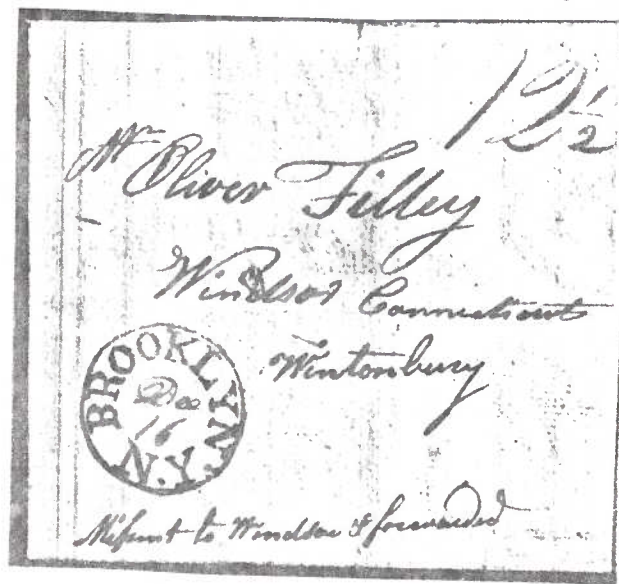 12½
Mr Oliver Filley
Windsor Connecticut
Wintonbury
BROOKLYN N.Y.
Dec
16
Missent to Windsor & forwarded